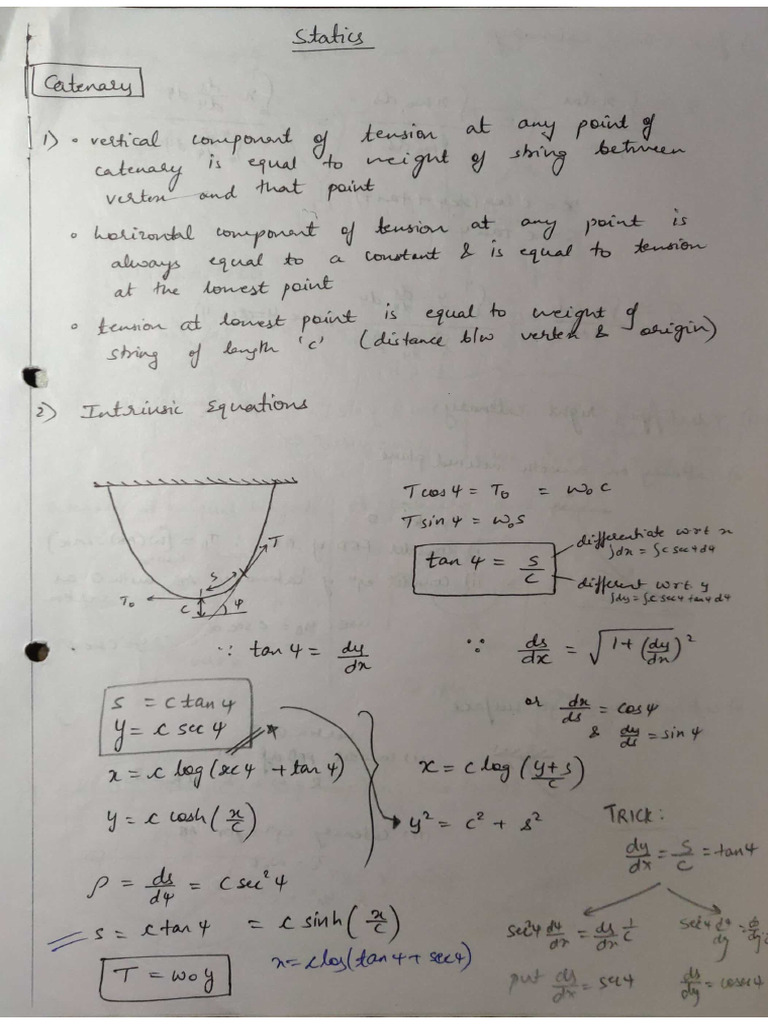 Statics
Catenary
1) • vertical component of tension at any point of
catenary is equal to weight of string between
vertex and that point
• horizontal component of tension at any point is
always equal to a constant & is equal to tension
at the lowest point
• tension at lowest point is equal to weight of
string of length 'c' (distance b/w vertex & origin)
2) Intrinsic Equations
T cos ψ = T₀ = w₀ c
T sin ψ = w₀ s
tan ψ = s/c
differentiate wrt x
∫dx = ∫c sec ψ dψ
different wrt y
∫dy = ∫c sec ψ tan ψ dψ
T
s
T₀
c
ψ
∵ tan ψ = dy/dx
∵ ds/dx = √(1 + (dy/dx)²)
or dx/ds = cos ψ
& dy/ds = sin ψ
s = c tan ψ
y = c sec ψ
x = c log (sec ψ + tan ψ)
x = c log ((y+s)/c)
y = c cosh (x/c)
y² = c² + s²
ρ = ds/dψ = c sec² ψ
s = c tan ψ = c sinh (x/c)
x = c log (tan ψ + sec ψ)
T = w₀ y
TRICK:
dy/dx = s/c = tan ψ
sec² ψ dψ/dx = ds/dx 1/c
put ds/dx = sec ψ
sec² ψ dψ/dy =
ds/dy = cosec ψ